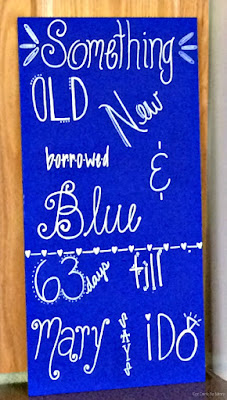 Something
OLD
New
borrowed
&
Blue
63 days till
Mary SAYS iDO